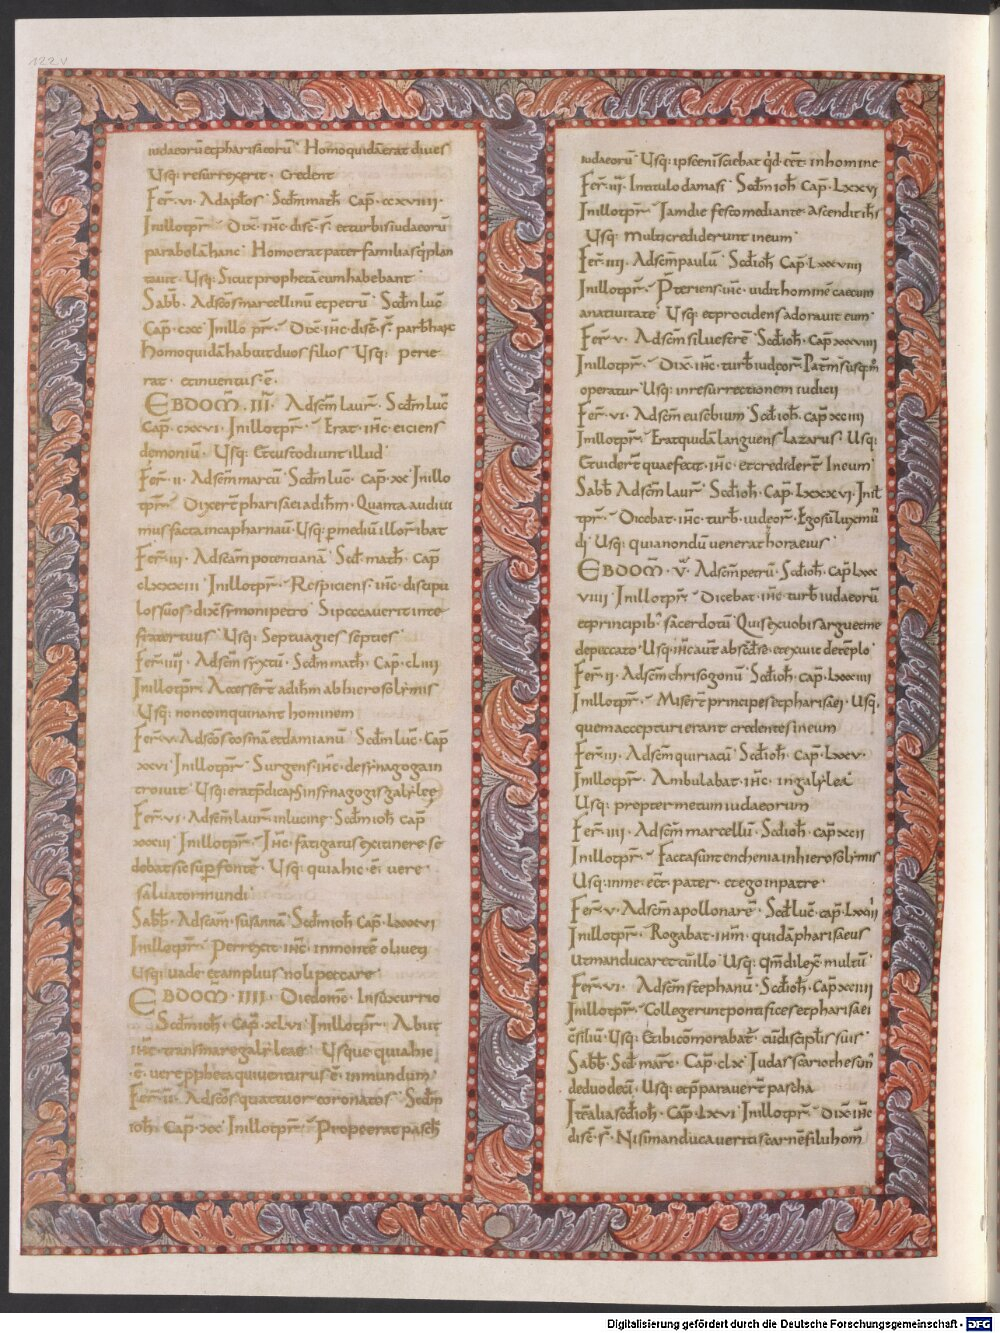 122v
iudaeorū et pharisaeorū · Homo quidā erat diues
Usq: resurrexerit · Credent
Fer̄ · vi · Ad aplōs · Scd̄m math̄ · Cap̄ · ccxviiii ·
In illo tpr̄ · Dix̄ · ih̄c · disc̄ · s̄ · et turbis iudaeorū
parabolā hanc · Homo erat pater familias q̇ plan
tauit · Usq: Sicut prophetā eum habebant
Sabb̄ · Ad sc̄os marcellinū et petrū · Scd̄m luc̄
Cap̄ · cxc In illo pr̄ · Dix̄ · ih̄c · disc̄ · s̄ · parb̄ hāc
Homo quidā habuit duos filios Usq: perie
rat · et inuentus · ē
EBDOM̄ · III · Ad sc̄m laur̄ · Scd̄m luc̄
Cap̄ · cxxvi · In illo tpr̄ · Erat · ih̄c · eiciens
demoniū · Usq: Et custodiunt illud
Fer̄ · ii · Ad sc̄m marcū · Scd̄m luc̄ · Cap̄ · xx In illo
tpr̄ · Dixer̄t pharisaei ad ih̄m · Quanta audiui
mus facta in capharnaū · Usq: p̄ mediū illor̄ ibat
Fer̄ · iii · Ad scām potentianā · Scd̄ · math̄ · Cap̄
clxxxiii In illo tpr̄ · Respiciens · ih̄c · discipu
los suos · dix̄ symoni petro · Si peccauerit in te
frater tuus · Usq: Septuagies septies
Fer̄ · iiij · Ad sc̄m syxtū · Scd̄m math̄ · Cap̄ · cliiii
In illo tpr̄ · Accesser̄t ad ih̄m ab hierosolymis
Usq: non coinquinant hominem
Fer̄ · v · Ad sc̄os cosmā et damianū · Scd̄m luc̄ · Cap̄
xxvi · In illo tpr̄ · Surgens · ih̄c · de synagoga in
troiuit · Usq: erat p̄dicans in synagogis galyleę
Fer̄ · vi · Ad sc̄m laur̄ in lucine · Scd̄m ioh̄ · Cap̄
xxxiii · In illo tpr̄ · Ih̄c · fatigatus ex itinere se
debat sic sup̄ fontē · Usq: quia hic · ē · uere
saluator mundi
Sabb̄ · Ad scām · susannā · Scd̄m ioh̄ · Cap̄ · Lxxxvi
In illo tpr̄ · Perrexit · ih̄c · in montē oliueti
Usq: uade et amplius noli peccare
EBDOM̄ · IIII · Die domc̄ · In sūxurrio
Scd̄m ioh̄ · Cap̄ · xLvi · In illo tpr̄ · Abiit
ih̄c · trans mare galyleae · Usque quia hic
· ē · uere ppheta qui uenturus ē · in mundum
Fer̄ · ii · Ad sc̄os quattuor coronatos · Scd̄m
ioh̄ · Cap̄ · xx̄ In illo tpr̄ · Prope erat pasch̄
iudaeorū · Usq: ipse eni sciebat q̇d eēt in homine
Fer̄ · iii · In titulo damasi · Scd̄m ioh̄ · Cap̄ · Lxxvi
In illo tpr̄ · Iam die festo mediante · Ascendit ih̄s
Usq: Multi crediderunt in eum
Fer̄ · iiii · Ad sc̄m paulū · Scd̄ ioh̄ Cap̄ Lxxxviiii
In illo tpr̄ · P̄teriens · ih̄c · uidit hominē caecum
a natiuitate · Usq: et procidens adorauit eum
Fer̄ · v · Ad sc̄m siluestrē · Scd̄ ioh̄ · Cap̄ xxxviiii
In illo tpr̄ · Dix̄ · ih̄c · turb̄ iudeor̄ · Pat̄ m̄s usq̇ m̊
operatur Usq: in resurrectionem iudicii
Fer̄ · vi · Ad sc̄m eusebium · Scd̄ ioh̄ · cap̄ xciiii
In illo tpr̄ · Erat quidā languens Lazarus Usq:
Et uider̄t quae fecit · ih̄c · et credider̄t In eum
Sabb̄ Ad sc̄m laur̄ · Scd̄ ioh̄ · Cap̄ · Lxxxvi · In il̄
tpr̄ · Dicebat · ih̄c · turb̄ · iudeor̄ · Ego sū lux mū
di Usq: quia nondū uenerat hora eius
EBDOM̄ · V · Ad sc̄m petrū · Scd̄ ioh̄ · Cap̄ Lxxx
viiii In illo tpr̄ · Dicebat · ih̄c · turb̄ iudaeorū
et principib; sacerdotū Quis ex uobis arguet me
de peccato · Usq: ih̄c aut̄ absc̄d̄te · et exiuit de tēplo
Fer̄ · ii · Ad sc̄m chrisogonū · Scd̄ ioh̄ · cap̄ · Lxxxiiii
In illo tpr̄ · Miser̄t principes et pharisaei · Usq:
quem accepturi erant credentes in eum
Fer̄ · iii · Ad sc̄m quiriacū · Scd̄ ioh̄ · Cap̄ · Lxxv ·
In illo tpr̄ · Ambulabat · ih̄c · in galylea
Usq: propter metum iudaeorum
Fer̄ · iiii · Ad sc̄m marcellū · Scd̄ ioh̄ · cap̄ xcii
In illo tpr̄ · Facta sunt enchenia in hierosolymis
Usq: in me · ēt · pater · et ego in patre ·
Fer̄ · v · Ad sc̄m apollonarē · Scd̄ luc̄ · cap̄ · Lxxiii
In illo tpr̄ · Rogabat · ih̄m · quidā pharisaeus
ut manducaret cū illo Usq: qm̄ dilex̄ · multū
Fer̄ · vi · Ad sc̄m stephanū · Scd̄ ioh̄ · Cap̄ xciiii
In illo tpr̄ · Collegerunt pontifices et pharisaei
c̄siliū · Usq: Et ibi cōmorabat̄ · cū discipl̄is suis
Sabb̄ · Scd̄ marc̄ · Cap̄ · clx Iudas scariothes un̄
de duodecī · Usq: et p̄parauer̄t pascha
It̄ alia scd̄ ioh̄ · Cap̄ · Lxvi In illo tpr̄ · Dix̄ ih̄c
disc̄ · s̄ · Nisi manducaueritis carnē filii hom̄
Digitalisierung gefördert durch die Deutsche Forschungsgemeinschaft - DFG